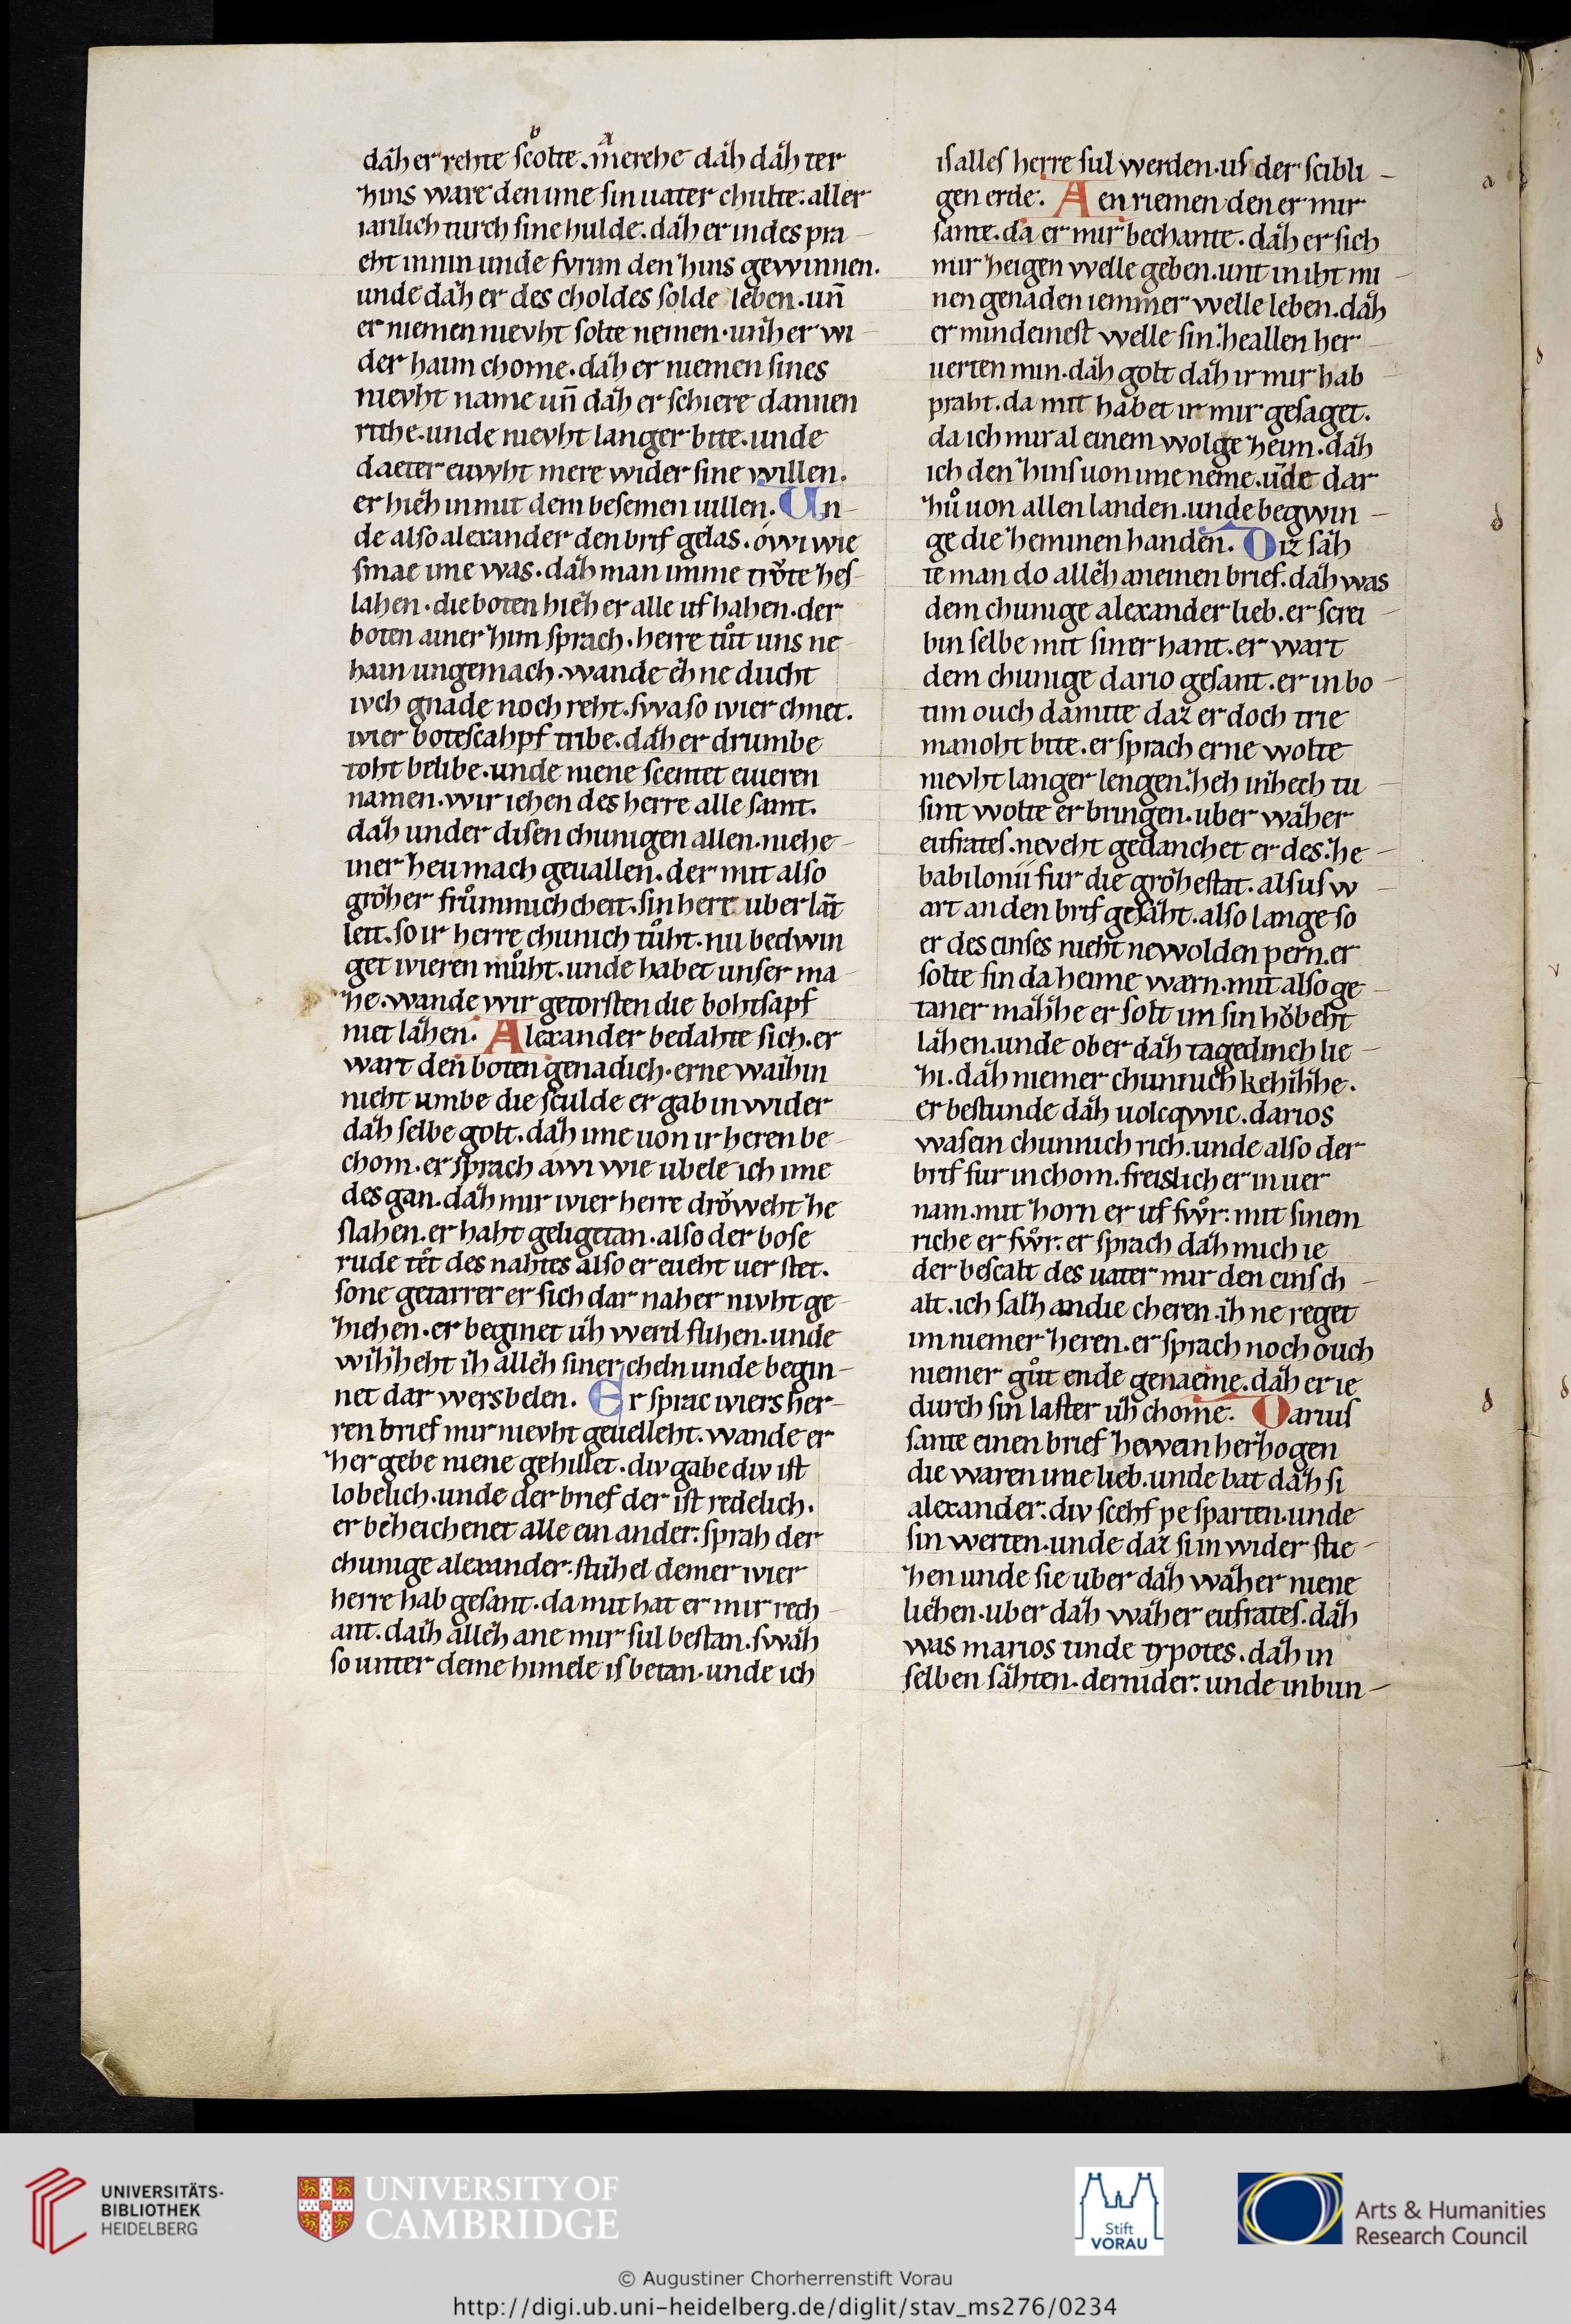 daͤh er rehte ſcolte. merche daͤh daͤh ter
hins ware den ime ſin uater chulte. aller
iarilich turch ſine hulde. daͤh er in des pra
eht in nin unde fvrim den hins gewinnen.
unde daͤh er des choldes ſolde leben. un̄
er niemen nievht ſolte nemen. un̄ h er wi
der haim chome. daͤh er niemen ſines
nievht name un̄ daͤh er ſchiere dannen
rithe. unde nievht langer bite. unde
daeter euwht mere wider ſine willen.
er hieh in mit dem beſemen uillen. Un
de alſo alexander den brif gelas. ówi wie
ſmae ime was. daͤh man imme troͮte heſ
lahen. die boten hieͤh er alle uf hahen. der
boten ainer him ſprach. herre tuͦt uns ne
hain ungemach. wande eͤh ne ducht
ivch gnade noch reht. ſwaſo ivier chnet.
ivier boteſcahpf tribe. daͤh er drumbe
toht belibe. unde niene ſcentet eiueren
namen. wir iehen des herre alle ſamt.
daͤh under diſen chunigen allen. niehe
iner heu mach geuallen. der mit alſo
groͤher fruͦmmichcheit. ſin herr uber laͤit
leit. ſo ir herre chunich tuͦht. nu bedwin
get ivieren muͦht. unde habet unſer ma
he. wande wir getorſten die bohtſapf
niet laͤhen. Alexander bedahte ſich. er
wart den boten genadich. er ne waihin
nieht umbe die ſculde er gab in wider
daͤh ſelbe golt. daͤh ime uon ir heren be
chom. er ſprach áwi wie ubele ich ime
des gan. daͤh mir ivier herre droͮweht he
ſlahen. er haht geligetan. alſo der boſe
rude teͤt des nahtes alſo er eueht uer ſtet.
ſone getarrer er ſich dar naher nivht ge
hiehen. er beginet uͤh werd flihen. unde
wiͤhheht iͤh alleͤh ſiner cheln unde begin
net dar wers belen. Er ſprac iviers her
ren brief mir nievht geuelleht. wande er
her gebe niene gehillet. div gabe div iſt
lobelich. unde der brief der iſt redelich.
er beheichenet alle ein ander. ſprah der
chunige alexander. ſtuͤhel demer ivier
herre hab geſant. da mit hat er mir rech
ant. daiͤh alleͤh ane mir ſul beſtan. ſwaͤh
ſo unter deme himele iſ betan. unde ich
iſ alleſ herre ſul werden. uſ der ſcibli
gen erde. Aen riemen den er mir
ſante. da er mir bechante. daͤh er ſich
mir heigen welle geben. unt in iht mi
nen genaden iemmer welle leben. daͤh
er min deineſt welle ſin. he allen her
uerten min. daͤh golt daͤh ir mir hab
praht. da mit habet ir mir geſaget.
da ich mir al einem wolge heim. daͤh
ich den hinſ uon ime neme. ūde dar
huͦ uon allen landen. unde begwin
ge die he minen handen. Diz ſaͤh
te man do alleͤh an einen brief. daͤh was
dem chunige alexander lieb. er ſcrei
bin ſelbe mit ſiner hant. er wart
dem chunige dario geſant. er in bo
tim ouch da mitte daz er doch trie
manoht bite. er ſprach er ne wolte
nievht langer lengen. heh inhech tu
ſint wolte er bringen. uber waͤher
eufrateſ. neveht gedanchet er des. he
babilonii fur die groͤheſtat. alſuſ w
art an den brif geſaͤht. alſo lange ſo
er des cinſes nieht ne wolden pern. er
ſolte ſin da heime warn. mit alſo ge
taner maͤhhe er ſolt im ſin hoͮbeht
laͤhen. unde ober daͤh tagedineh lie
hi. daͤh niemer chunnich kehiͤhhe.
er beſtunde daͤh uolcqwic. darios
waſein chunnich rich. unde alſo der
brif fur in chom. freislich er in uer
nam. mit horn er uf fwͦr. mit ſinem
riche er fwͦr. er ſprach daͤh mich ie
der beſcalt des uater mir den cinſ ch
alt. ich ſalh an die cheren. iͤh ne reget
im niemer heren. er ſprach noch ouch
niemer guͦt ende genaeme. daͤh er ie
durch ſin laſter uͤh chome. Dariuſ
ſante einen brief hewein herhogen
die waren ime lieb. unde bat daͤh ſi
alexander. div ſcehf pe ſparten. unde
ſin werten. unde daz ſi in wider ſtie
hen unde ſie uber daͤh waͤher niene
lieͤhen. uber daͤh waͤher eufrateſ. daͤh
was marios unde typotes. daͤh in
ſelben ſaͤhten. dernider. unde inbun
UNIVERSITÄTS-
BIBLIOTHEK
HEIDELBERG
UNIVERSITY OF
CAMBRIDGE
Stift
VORAU
Arts & Humanities
Research Council
© Augustiner Chorherrenstift Vorau
http://digi.ub.uni-heidelberg.de/diglit/stav_ms276/0234